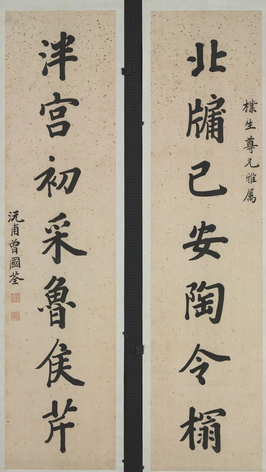 樸生尊兄雅属
北牖已安陶令榻
泮宮初采魯侯芹
沅甫曾國荃